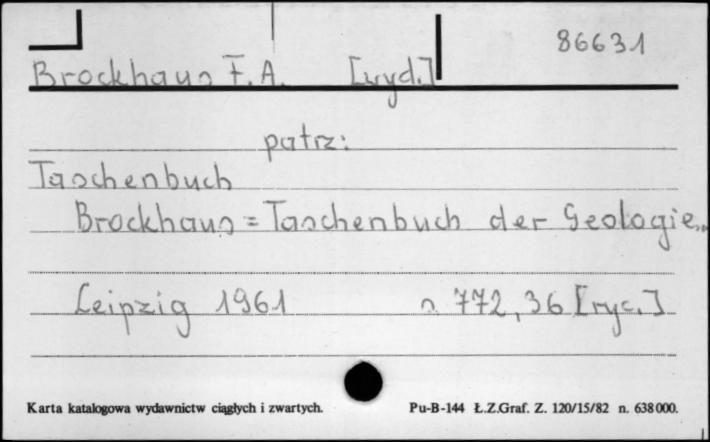 86631
Brockhaus F. A. [wyd.]
patrz:
Taschenbuch
Brockhaus = Taschenbuch der Geologie...
Leipzig 1961 s. 772, 36 [ryc.]
Karta katalogowa wydawnictw ciągłych i zwartych. Pu-B-144 Ł.Z.Graf. Z. 120/15/82 n. 638000.